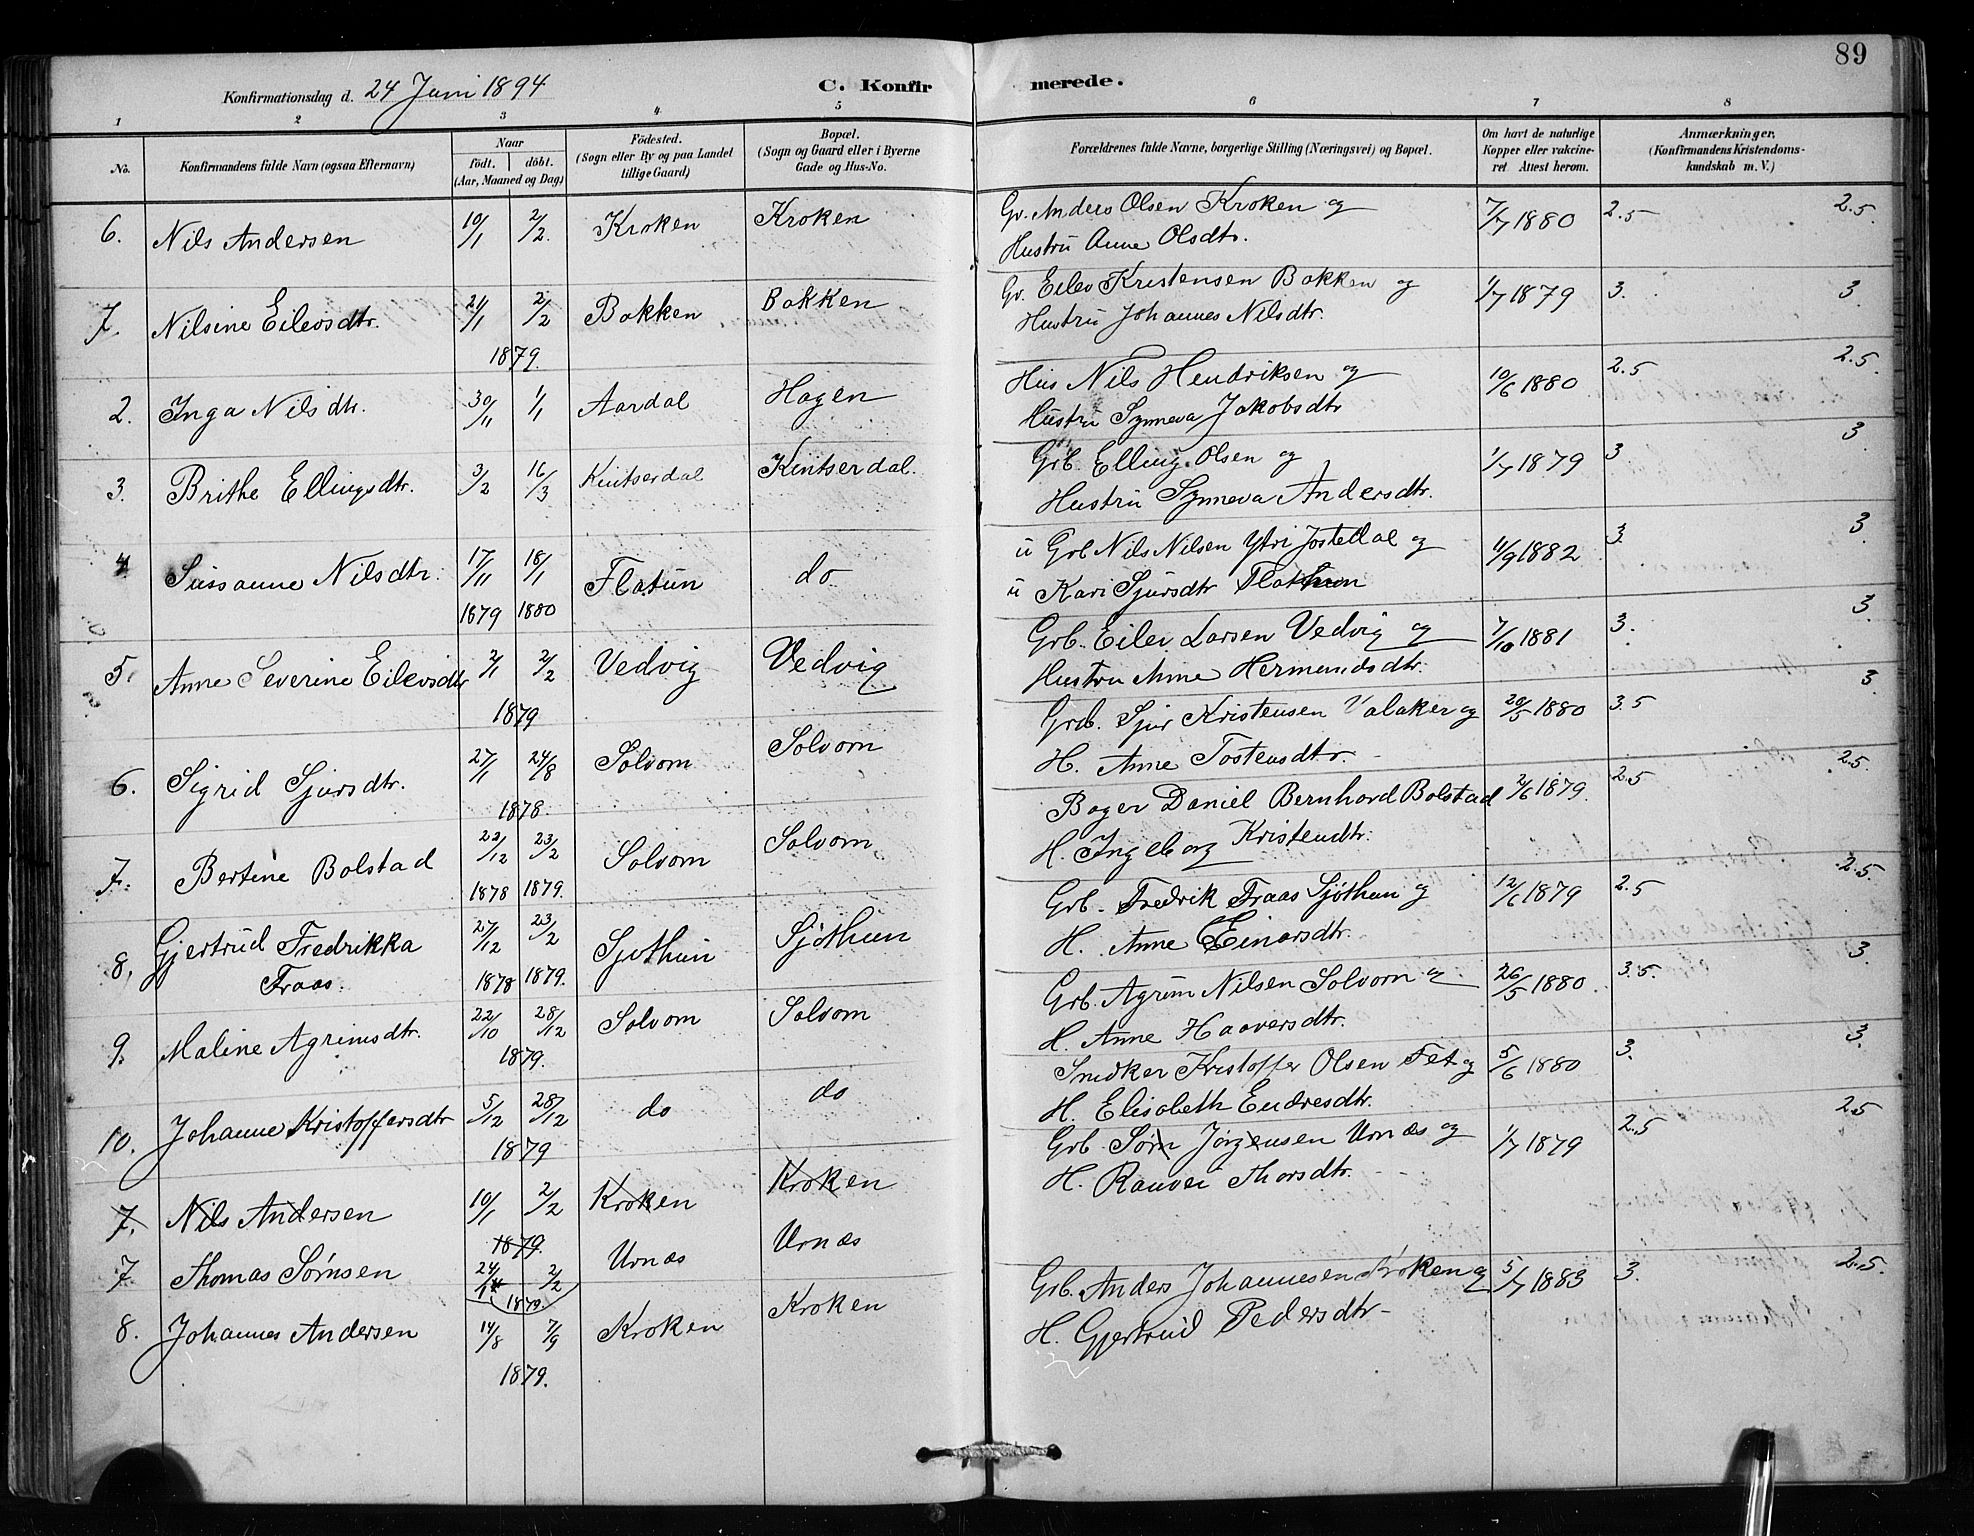 89
Konfirmationsdag d. 24 Juni 1894
C. Konfirmerede.
1 2 3 4 5 6 7 8
No.
Konfirmandens fulde Navn (ogsaa Efternavn)
Naar
födt. döbt.
(Aar, Maaned og Dag)
Födested.
(Sogn eller By og paa Landet
tillige Gaard)
Bopæl.
(Sogn og Gaard eller i Byerne
Gade og Hus-No.
Forældrenes fulde Navne, borgerlige Stilling (Næringsvei) og Bopæl.
Om havt de naturlige
Kopper eller vakcine-
ret Attest herom.
Anmærkninger,
(Konfirmandens Kristendoms-
kundskab m. V.)
6. Nils Andersen 10/1 2/2. Kroken Kroken Gv. Anders Olsen Kroken og 7/7 1880 2.5 2.5.
Hustru Anne Olsdtr.
7. Nilsine Eilevsdtr. 21/1 2/2 Bakken Bakken Gv. Eilev Kristensen Bakken og 1/7 1879 3. 3
1879. Hustru Johannes Nilsdtr.
2. Inga Nilsdtr. 30/11 1/1 Aardal Hagen Hus Nils Hendriksen og 10/6 1880 2.5 2.5.
Hustru Synneva Jakobsdtr
3. Brithe Ellingsdtr. 3/2 16/3 Kintserdal Kintserdal. Grb. Elling Olsen og 1/7 1879 3 3
Hustru Synneva Andersdtr.
4 Sussanne Nilsdtr. 17/11 18/1 Flatun do u Grb Nils Nilsen Ytri Jostedal og 11/9 1882 3. 3
1879 1880 u Kari Sjursdtr Flathun
5. Anne Severine Eilevsdtr 2/1 2/2 Vedvig Vedvig Grb. Eilev Larsen Vedvig og 7/10 1881 3. 3.
1879 Hustru Anne Hermundsdtr.
6. Sigrid Sjursdtr. 27/1 24/8 Solvorn Solvorn Grb. Sjur Kristensen Valaker og 20/5 1880 3.5 3.
1878. H. Anne Tostensdtr.
7. Bertine Bolstad 22/12 23/2 Solvorn Solvorn Bager Daniel Bernhard Bolstad 2/6 1879. 2.5 2.5.
1878 1879. H. Ingeborg Kristendtr.
8. Gjertrud Fredrikka 27/12 23/2 Sjøthun Sjøthun Grb. Fredrik Fraas Sjøthun og 12/6 1879 2.5 2.5.
Fraas. 1878 1879. H. Anne Einarsdtr.
9. Maline Agrimsdtr. 22/10 28/12 Solvorn Solvorn Grb. Agrim Nilsen Solvorn og 26/5 1880 3.5. 3.
1879. H. Anne Haaversdtr.
10. Johanne Kristoffersdtr 5/12 28/12 do do Snedker Kristoffer Olsen Fet og 5/6 1880 3. 3.
1879 H. Elisabeth Endresdtr.
7. Nils Andersen 10/1 2/2 Kroken Kroken
1879.
7. Thomas Sørnsen 24/1 2/2 Urnæs Urnæs Grb. Sørn Jørgensen Urnæs og 1/7 1879 2.5 2.5
1879. H. Ranvei Thorsdtr.
8. Johannes Andersen 14/8 7/9 Kroken Kroken Grb. Anders Johannesen Kroken og 5/7 1883 3. 2.5.
1879. H. Gjertrud Pedersdtr